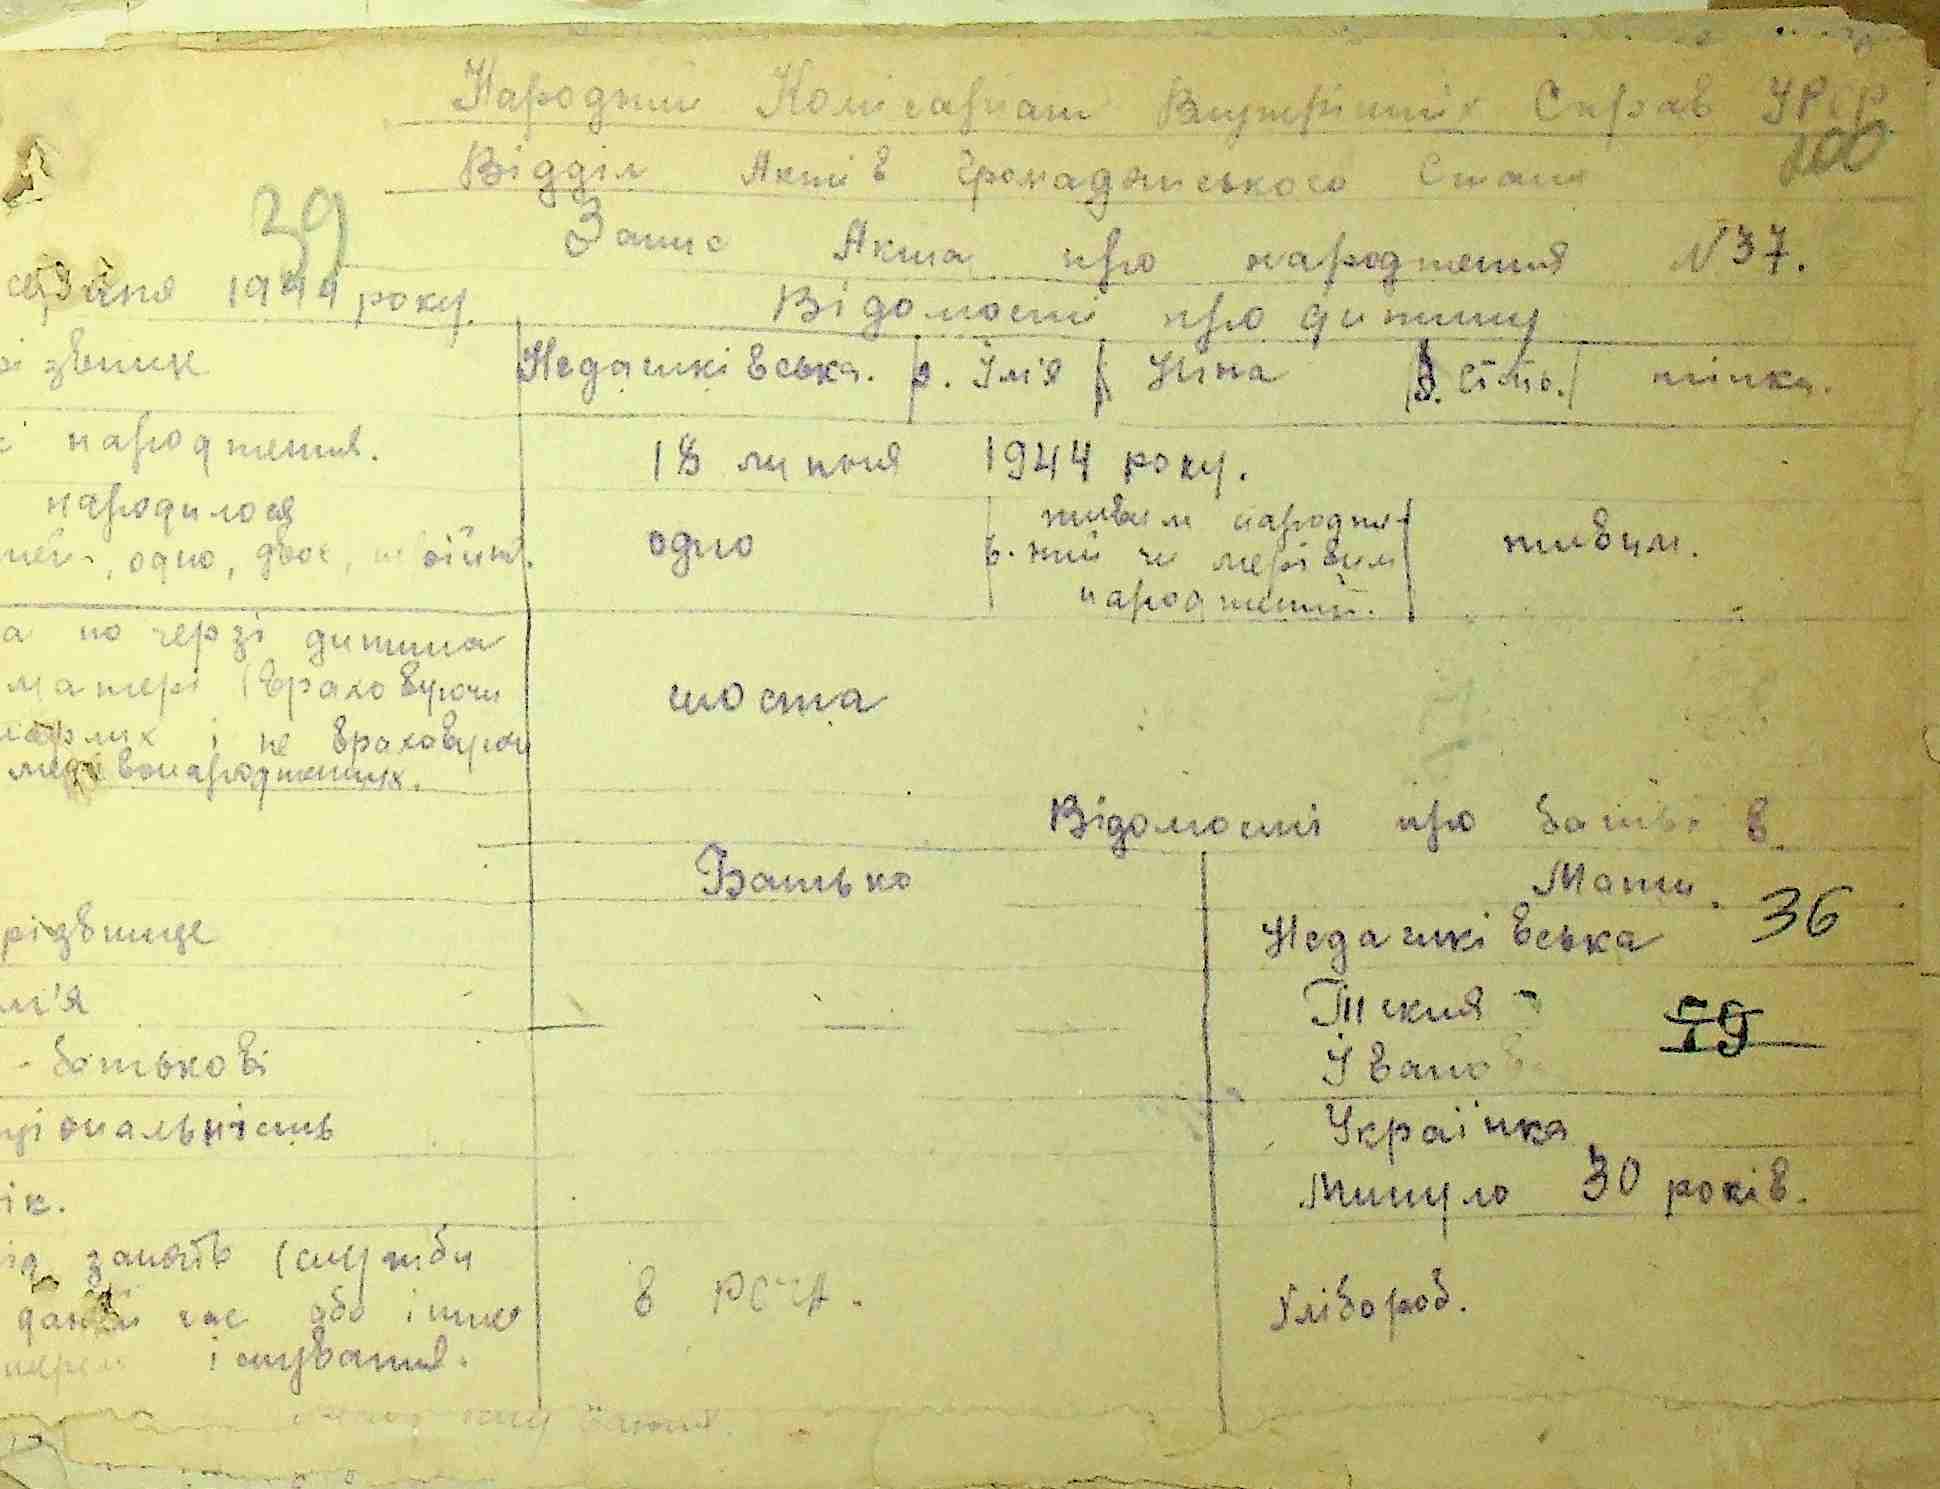 Народний Комісаріат Внутрішніх Справ УРСР
200
Відділ Актів Громадянського Стану
39
Запис Акта про народження N 37.
серпня 1944 року.
Відомості про дитину
різвище Недашківська. р. Ім'я Ніна в. стать. жінка.
народження. 18 липня 1944 року.
народилося
одно, двоє, трійня. одно в. живим народже-
ний чи мертвим
народжений. живим.
а по черзі дитина
матері (враховуючи шоста
померлих і не враховуючи
мертвонароджених.
Відомості про батьків
Батько Мати.
різвище Недашківська 36
м'я Текля 79
- батькові Іванов
ціональність Українка
ік. Минуло 30 років.
ід занять (служби
даний час або інше в РСЧА. Хлібороб.
існування.